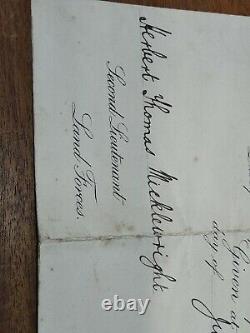 Herbert Thomas Micklewright
Second Lieutenant
Land Forces.
Given at
day of
ebay